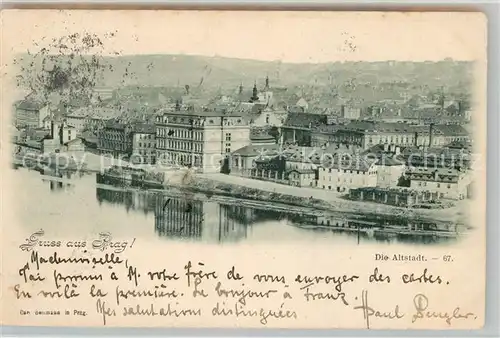 Gruss aus Prag!
Die Altstadt. - 67.
Mademoiselle,
J'ai promis à M. votre frère de vous envoyer des cartes.
En voilà la première. Bien de bonjour à Franz,
Mes salutations distinguées
Paul Pengler.
in Prag.